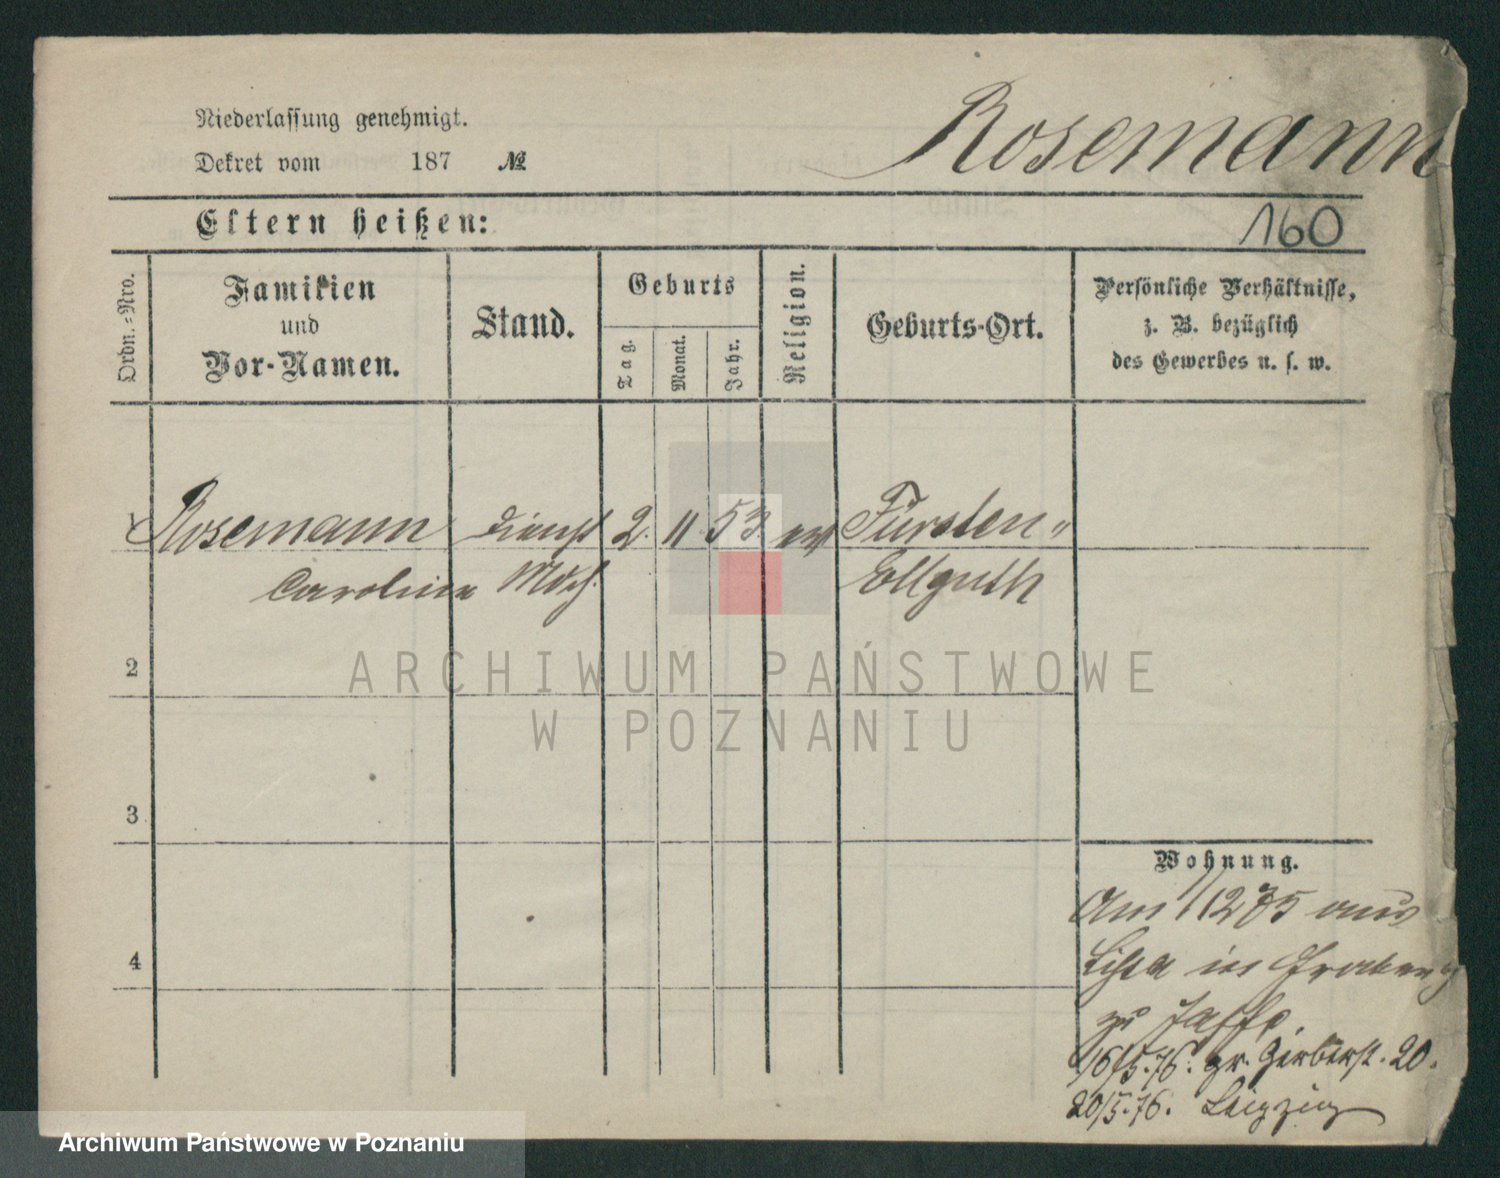 Niederlassung genehmigt.
Rosemann
Dekret vom 187 №
Eltern heißen:
160
Ordn.-Nro.
Familien
und
Vor-Namen.
Stand.
Geburts
Tag.
Monat.
Jahr.
Religion.
Geburts-Ort.
Persönliche Verhältnisse,
z. B. bezüglich
des Gewerbes u. s. w.
1 Rosemann Dienst 2. 11 53. ev Fürsten-
Caroline Mdch. Ellguth
2
3
4
Wohnung.
Am 1/12 75 aus
in Graben
zu Jaffe
16/5.76. gr. Gerberst. 20.
20/5.76. Leipzig
ARCHIWUM PAŃSTWOWE
W POZNANIU
Archiwum Państwowe w Poznaniu